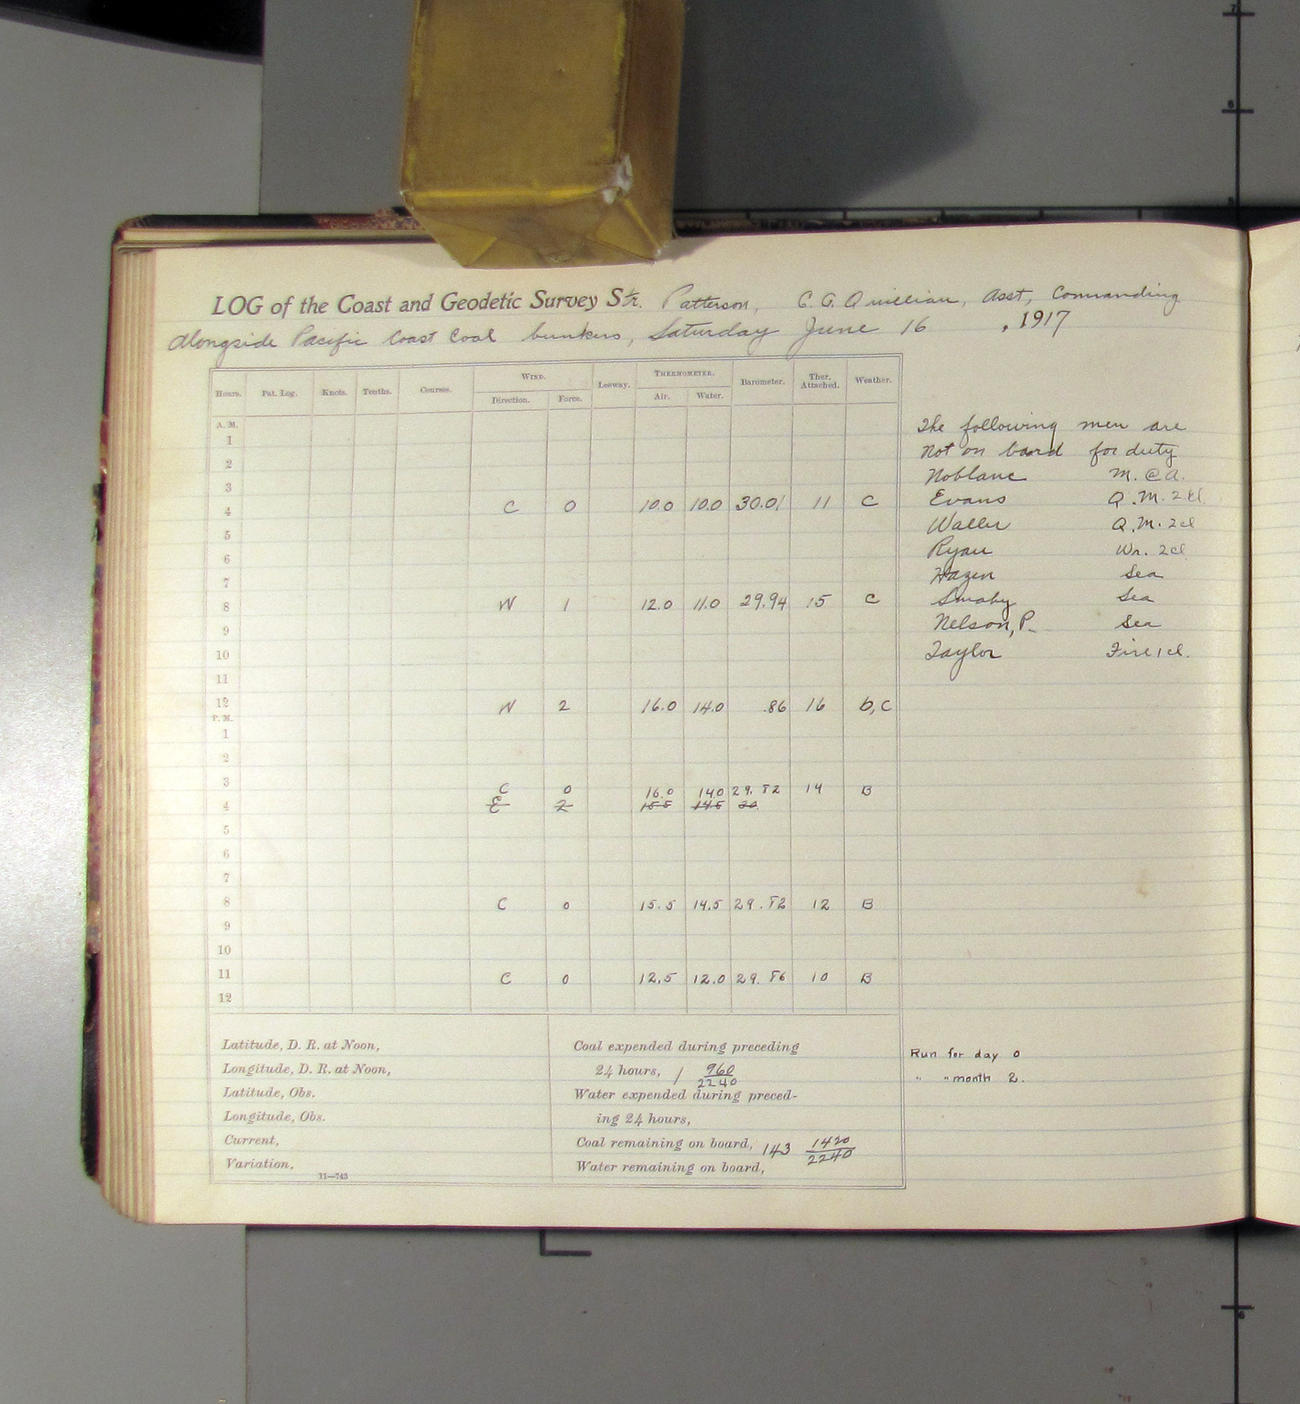 LOG of the Coast and Geodetic Survey Str. Patterson, C. G. Quillian, Asst, Commanding
Alongside Pacific Coast Coal bunkers, Saturday June 16, 1917
Hours. Pat. Log. Knots. Tenths. Courses. Wind. Leeway. Thermometer. Barometer. Ther. Attached. Weather.
Direction. Force. Air. Water.
A. M.
1
2
3
4 C 0 10.0 10.0 30.01 11 C
5
6
7
8 W 1 12.0 11.0 29.94 15 C
9
10
11
12 W 2 16.0 14.0 .86 16 b, C
P. M.
1
2
3 C 0 16.0 14.0 29.82 14 B
4 E 2 15.5 14.5
5
6
7
8 C 0 15.5 14.5 29.82 12 B
9
10
11 C 0 12.5 12.0 29.86 10 B
12
The following men are
not on board for duty
Noblanc M. @ A.
Evans Q. M. 2cl
Waller Q. M. 2cl
Ryan Wr. 2cl
Hazen Sea
Smaby Sea
Nelson, P. Sea
Taylor Fire 1cl.
Latitude, D. R. at Noon,
Longitude, D. R. at Noon,
Latitude, Obs.
Longitude, Obs.
Current,
Variation,
11—743
Coal expended during preceding
24 hours, 1 960/2240
Water expended during preced-
ing 24 hours,
Coal remaining on board, 143 1420/2240
Water remaining on board,
Run for day 0
" " month 2.